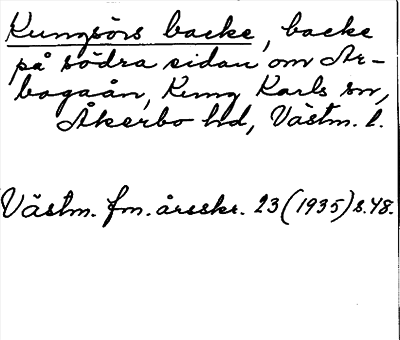 Kungsörs backe, backe
på södra sidan om Ar-
bogaån, Kung Karls sn,
Åkerbo hd, Västm. l.
Västm. fm. årsskr. 23 (1935) s. 48.